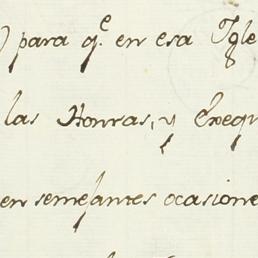 para q.e en esa Igle
las Honras, y Exequ
en semejantes ocasione